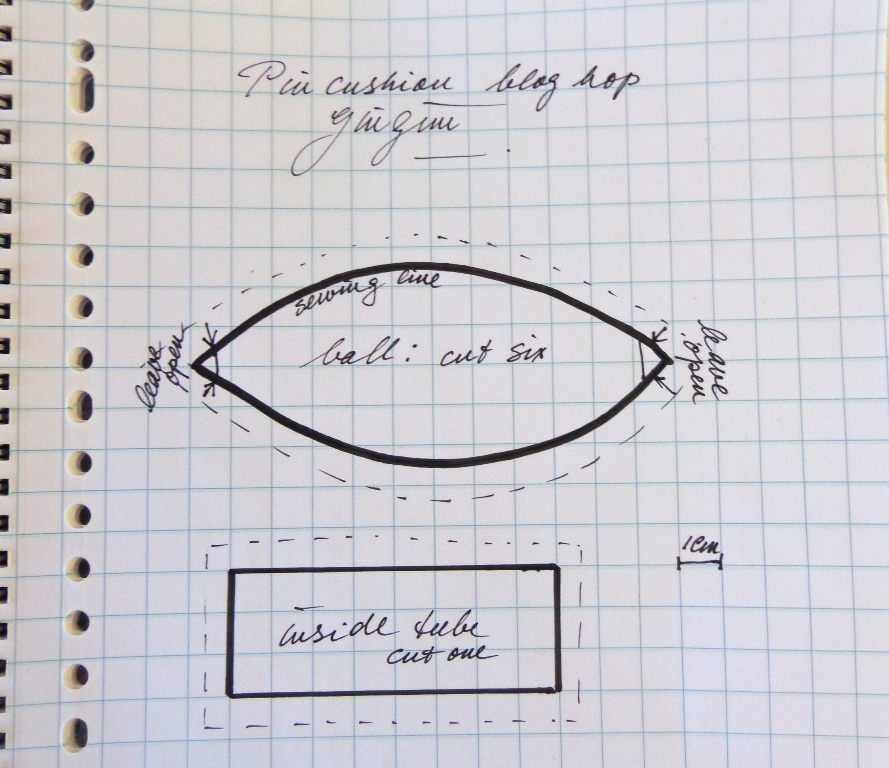 Pin cushion blog hop
Gingin
sewing line
ball: cut six
leave
open
leave
open
1cm
inside tube
cut one